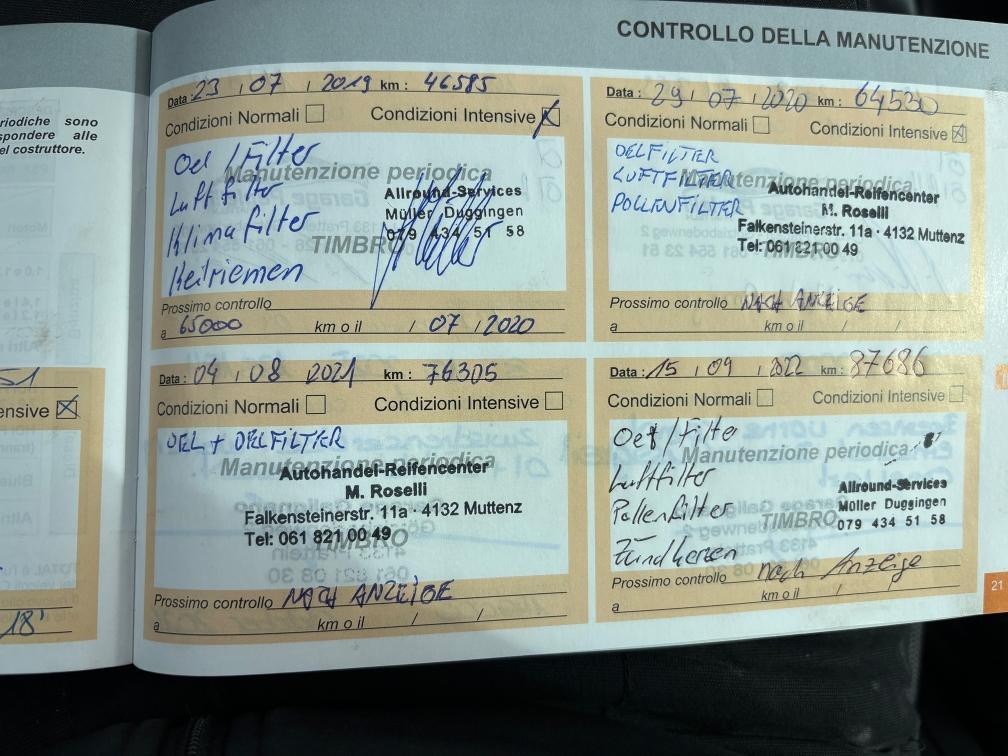 CONTROLLO DELLA MANUTENZIONE
riodiche sono
spondere alle
el costruttore.
51
ensive
18'
Data : 23 / 07 / 2019 km : 46585
Condizioni Normali Condizioni Intensive
Oel / Filter
Manutenzione periodica
Luftfilter
Klimafilter
Keilriemen
Allround-Services
Müller Duggingen
079 434 51 58
TIMBRO
Prossimo controllo
a 65000 km o il / 07 / 2020
Data : 29 / 07 / 2020 km : 64530
Condizioni Normali Condizioni Intensive
OELFILTER
LUFTFILTER
POLLENFILTER
Manutenzione periodica
Autohandel-Reifencenter
M. Roselli
Falkensteinerstr. 11a · 4132 Muttenz
TIMBRO
Tel: 061 821 00 49
Prossimo controllo NACH ANZEIGE
a km o il / /
Data : 04 / 08 2021 km : 76305
Condizioni Normali Condizioni Intensive
OEL + OELFILTER
Manutenzione periodica
Autohandel-Reifencenter
M. Roselli
Falkensteinerstr. 11a · 4132 Muttenz
Tel: 061 821 00 49
TIMBRO
Prossimo controllo NACH ANZEIGE
a km o il / /
Data : 15 / 09 / 2022 km : 87686
Condizioni Normali Condizioni Intensive
Oel / Filter
Manutenzione periodica
Luftfilter
Pollenfilter
Zündkerzen
Allround-Services
Müller Duggingen
TIMBRO
079 434 51 58
Prossimo controllo nach Anzeige
a km o il / /
21